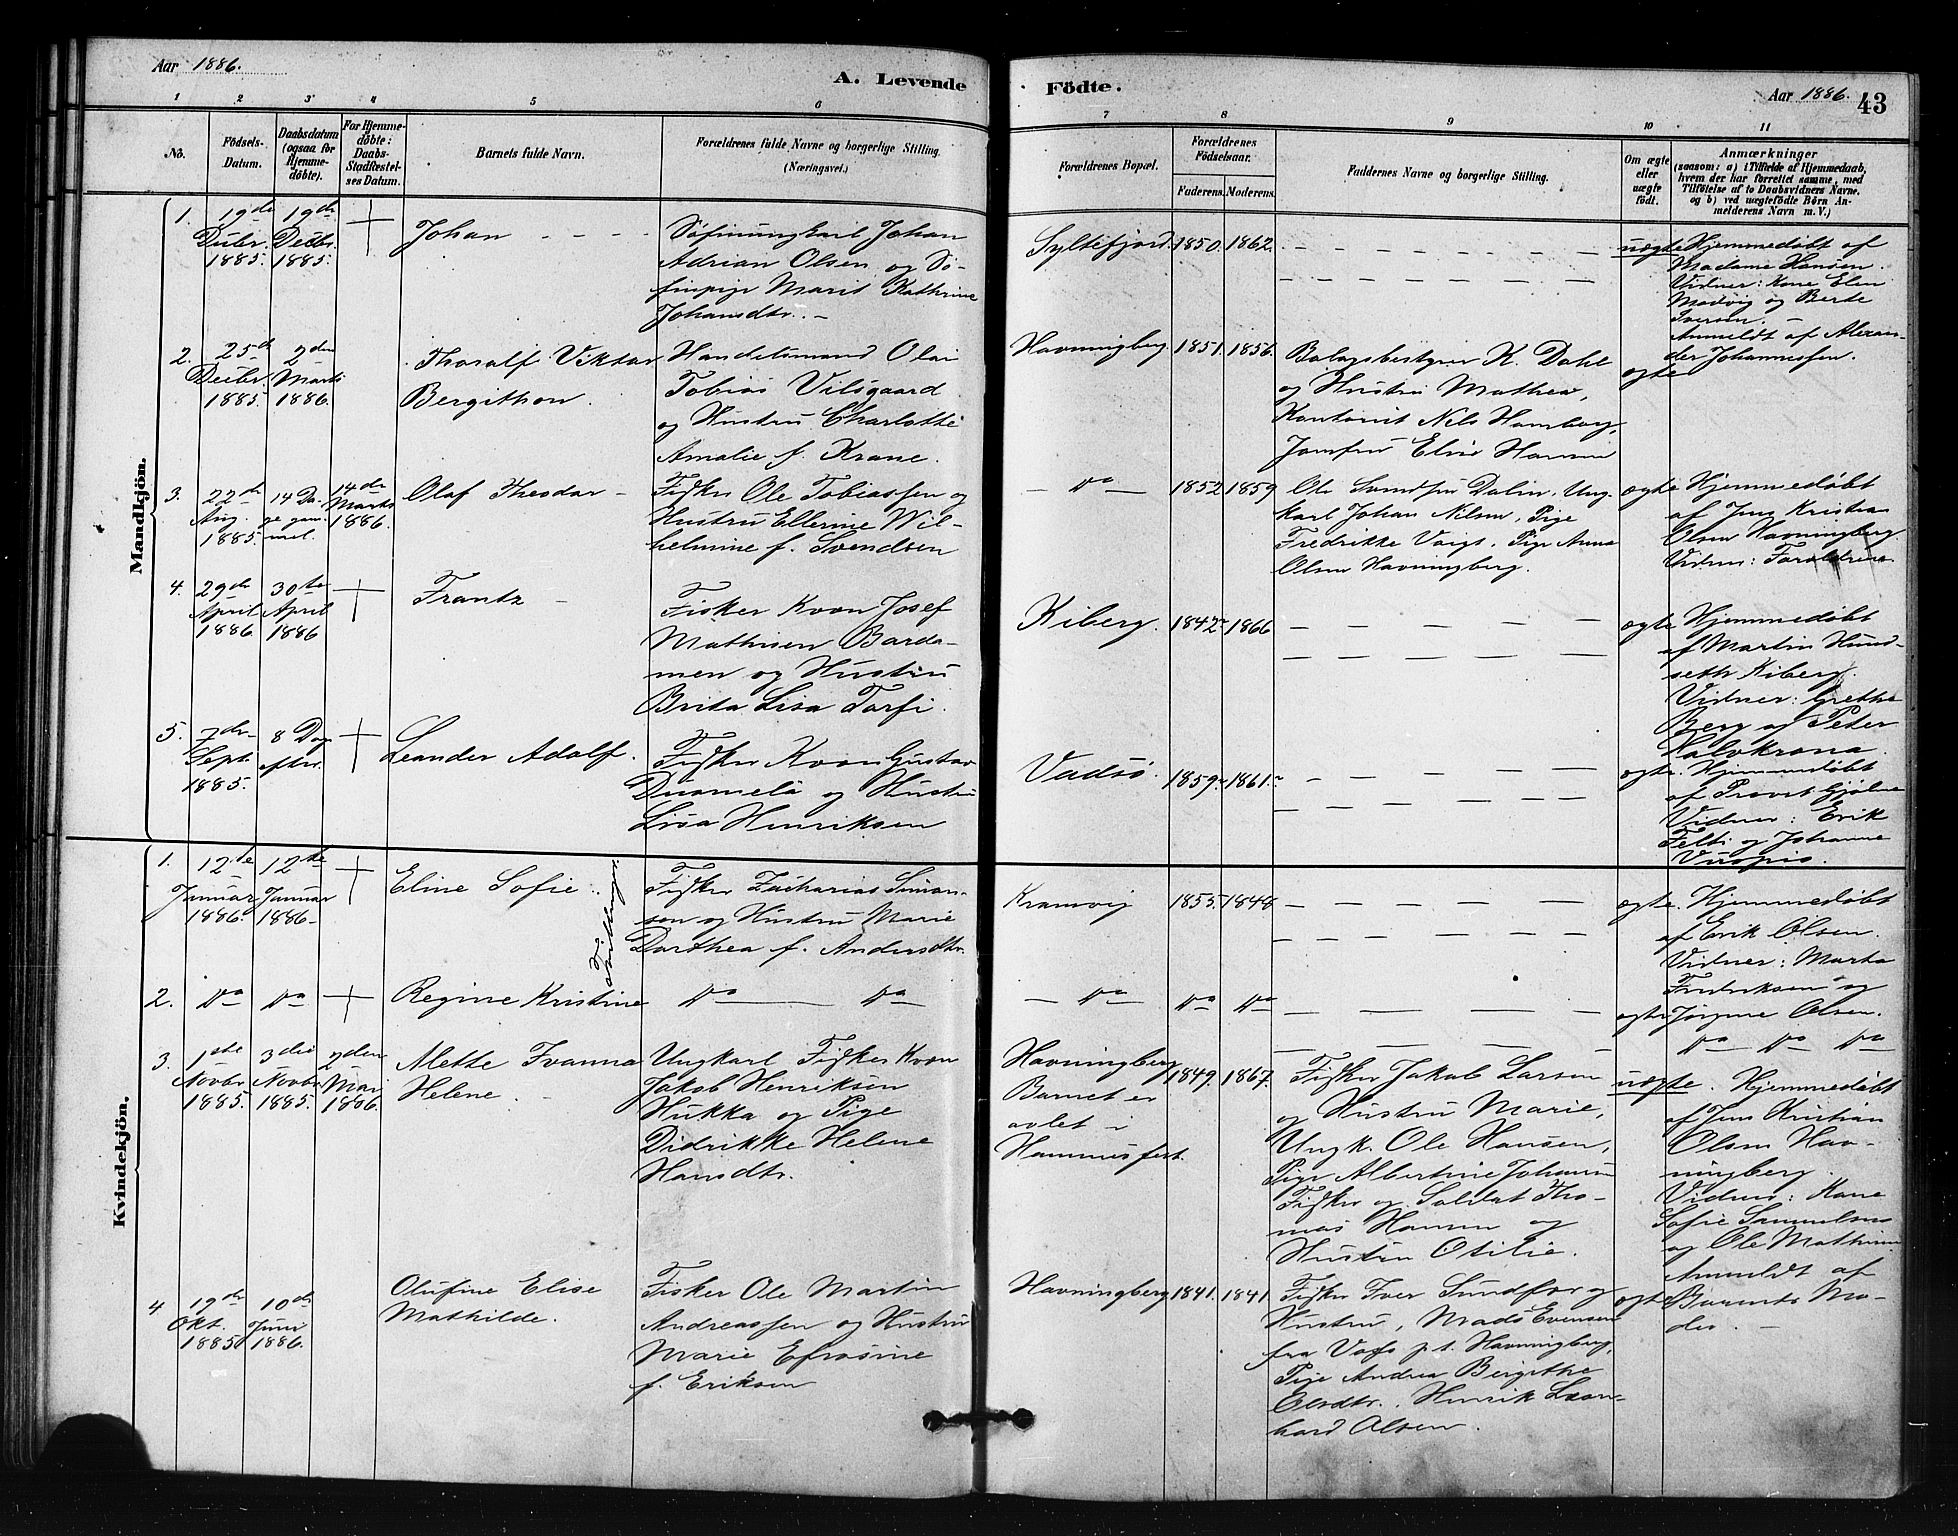 Aar 1886.
A. Levende
Födte.
Aar 1886.
43
1 2 3 4 5 6
7 8 9 10 11
No.
Födsels-
Datum.
Daabsdatum
(ogsaa for
Hjemme-
döbte).
For Hjemme-
döbte:
Daabs-
Stadfæstel-
ses Datum.
Barnets fulde Navn.
Forældrenes fulde Navne og borgerlige Stilling.
(Næringsvei.)
Forældrenes Bopæl.
Forældrenes
Födselsaar.
Faderens. Moderens.
Faddernes Navne og borgerlige Stilling.
Om ægte
eller
uægte
födt.
Anmærkninger
(saasom: a) i Tilfælde af Hjemmedaab,
hvem der har forrettet samme, med
Tilföielse af to Daabsvidners Navne,
og b) ved uægtefödte Börn An-
melderens Navn m. V.)
Mandkjön.
1.
19de
Decbr.
1885.
19de
Decbr.
1885.
Johan
Johan
Adrian Olsen og Sø-
finpige Marit Kathrine
Johansdtr.
Syltefjord.
1850.
1862.
uægte
Hjemmedøbt af
Madame Hansen.
Vidner: Kone Elen
Madvig og Berte
Iversen.
Anmeldt af Alexan-
der Johannessen.
2.
25de
Decbr.
1885.
2den
Marts
1886.
Thoralf Viktor
Bergithon.
Handelsmand Olai
Tobias Vilsgaard
og Hustru Charlotte
Amalie f. Krane.
Havningberg
1851.
1856.
K. Dahl
og Hustru Mathea,
Kontorist Nils Hamborg,
Jomfru Elise Hamm
ægte
3.
22de
Aug.
1885.
14 Da-
ge gam-
mel.
14de
Marts
1886.
Olaf Theodor
Fisker Ole Tobiassen og
Hustru Ellerine Wil-
helmine f. Svendsen
Do
1852
1859
Ole Dalin, Ung-
karl Johan Nilsen, Pige
Fredrikke Voigt, Pige Anna
Olsen Havningberg.
ægte
Hjemmedøbt
af Jens Kristian
Olsen Havningberg
Vidner: Forældrene
4.
29de
April
1886
30te
April
1886
Frantz
Fisker Kvæn Josef
Mathisen Barda-
men og Hustru
Brita Lisa Torfi.
Kiberg.
1842
1866
ægte
Hjemmedøbt
af Martin Hund-
seth Kiberg.
Vidner: Grethe
Berg og Peter
Kalvkrona.
5.
7de
Septr.
1885.
8 Dage
efter.
Leander Adolf.
Fisker Kvæn Gustav
og Hustru
Lisa Henriksen
Vadsø.
1859
1861
ægte.
Hjemmedøbt
af Provst
Vidner: Erik
og Johanne
Kvindekjön.
1.
12te
Januar
1886.
12te
Januar
1886.
Eline Sofie.
Tvillinger.
Fisker Zacharias Simon-
sen og Hustru Marie
Dorthea f. Andersdtr.
Kramvig
1855.
1848
ægte.
Hjemmedøbt
af Erik Olsen.
Vidner: Marta
Fredriksen og
Jørgine Olsen.
2.
Do
Do
Regine Kristine
Do Do
Do
Do
Do
ægte
Do Do Do
3.
1ste
Novbr
1885.
3die
Novbr
1885.
2den
Mai
1886.
Mette Ivanna
Helene.
Ungkarl Fisker Kvæn
Jakob Henriksen
Hukka og Pige
Didrikke Helene
Hansdtr.
Havningberg
Barnet er
avlet i
Hammerfest.
1849.
1867.
Fisker Jakob Larsen
og Hustru Marie,
Ungk. Ole Hansen,
Pige Albertine Johansen
Fisker og Soldat Tho-
mas Hansen og
Hustru Otilie.
uægte.
Hjemmedøbt
af Jens Kristian
Olsen Hav-
ningberg.
Vidner: Kone
Sofie Samuelsen
og Ole Mathisen
Anmeldt af
Barnets Mo-
der.
4
19de
Okt.
1885
10de
Juni
1886.
Olufine Elise
Mathilde.
Fisker Ole Martin
Andreassen og Hustru
Marie Efrosine
f. Eriksen
Havningberg
1841.
1841
Fisker Iver Sundfær og
Hustru, Mads Evensen
fra p.t. Havningberg,
Pige Andrea Bergithe
Olsdtr. Henrik Leon-
hard Olsen.
ægte